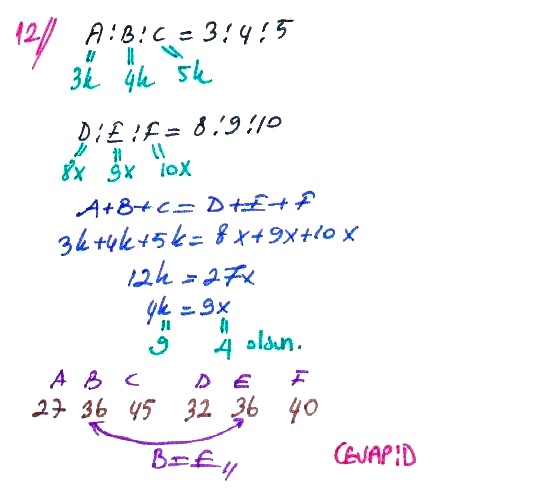 12// A:B:C = 3:4:5
3k 4k 5k
D:E:F = 8:9:10
8x 9x 10x
A+B+C = D+E+F
3k+4k+5k = 8x+9x+10x
12k = 27x
4k = 9x
9 4 olsun.
A B C D E F
27 36 45 32 36 40
B = E //
CEVAP:D